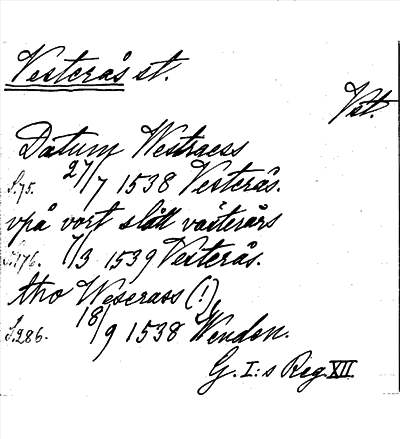 Vesterås st.
Vst.
Datum Westraess
S.75. 27/7 1538 Vesterås.
vpå vort slått västerårs
S.176. 7/3 1539 Vesterås.
tho Weserass (!),
S.286. 18/9 1538 Wenden.
G. I:s Reg. XII.